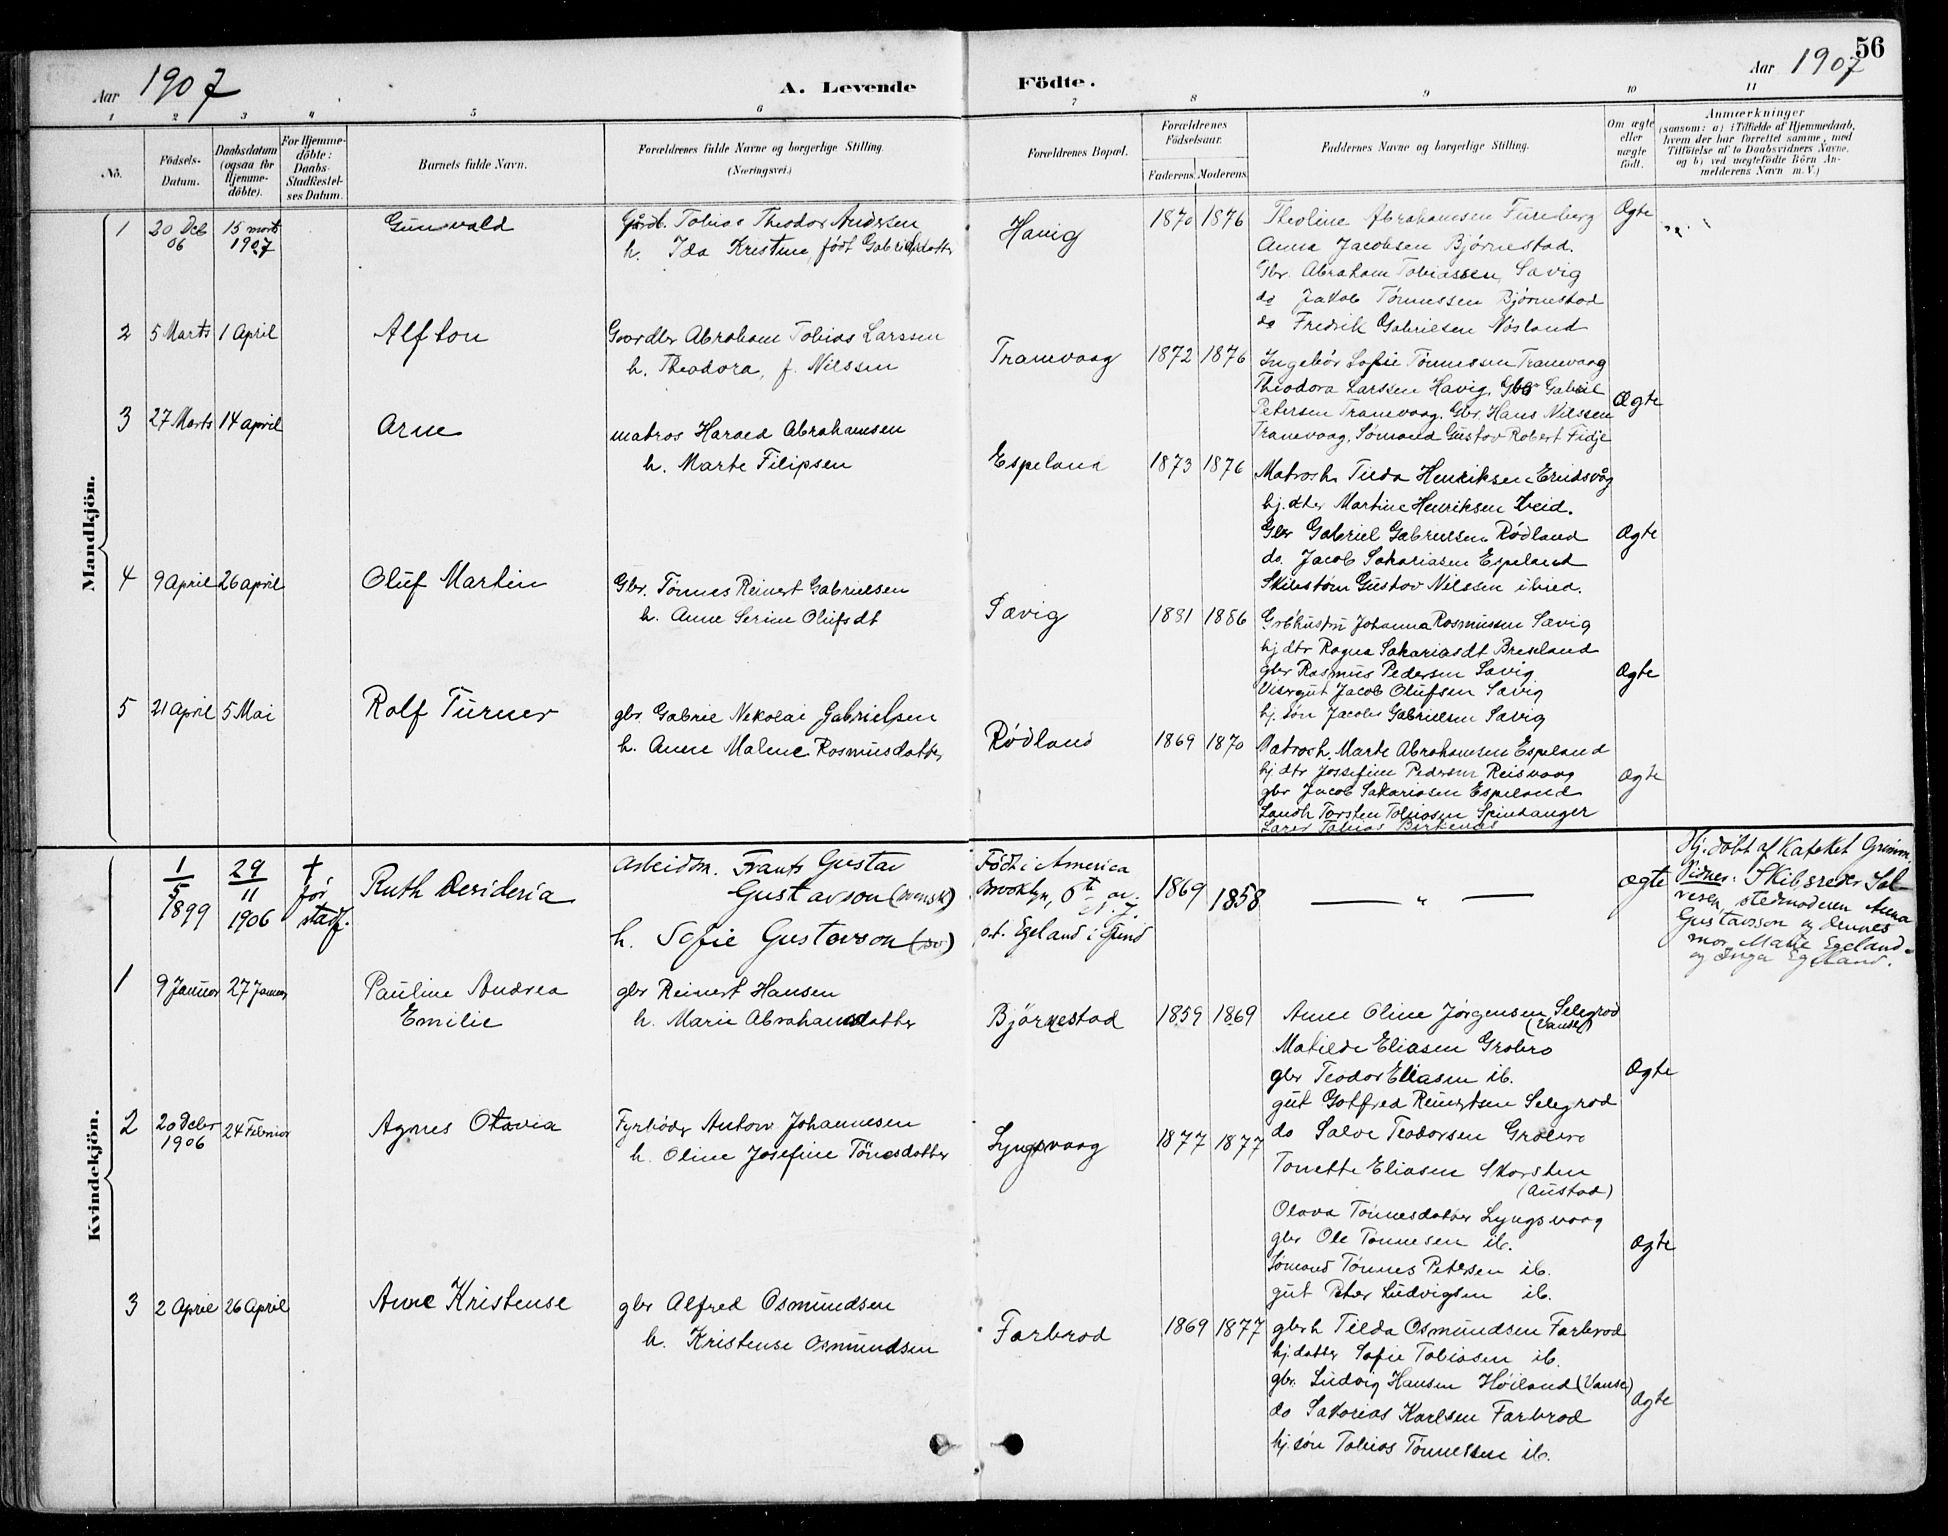 56
Aar 1907 A. Levende Födte. Aar 1907
1 2 3 4 5 6 7 8 9 10 11
No.
Födsels-Datum.
Daabsdatum (ogsaa for Hjemme-döbte).
For Hjemme-döbte: Daabs-Stadfæstel-ses Datum.
Barnets fulde Navn.
Forældrenes fulde Navne og borgerlige Stilling.
(Næringsvei.)
Forældrenes Bopæl.
Forældrenes Födselsaar.
Faderens. Moderens.
Faddernes Navne og borgerlige Stilling.
Om ægte eller uægte født.
Anmærkninger
(saasom: a) i Tilfælde af Hjemmedaab,
hvem der har forrettet samme, med
Tilföielse af to Daabsvidners Navne,
og b) ved uægtefödte Börn An-
melderens Navn m. V.)
Mandkjön.
1 20 Dcb 06 15 mars 1907 Gunvald
Gårdb. Tobias Theodor Andersen
h. Ida Kristine, født Gabrielsdatter
Havig 1870 1876
Theoline Abrahamsen Fureberg
Anna Jacobsen Bjørnestad.
Gbr. Abraham Tobiassen, Savig
do Jakob Tønnessen Bjørnestad
do Fredrik Gabrielsen Nøsland
Ægte
2 5 Marts 1 April Alfton
Gaardbr Abraham Tobias Larssen
h. Theodora, f. Nilssen
Tranevaag 1872 1876
Ingebør Sofie Tønnessen Tranevaag
Theodora Larssen Havig, Gbr Gabriel
Petersen Tranevaag. Gbr. Hans Nilssen
Tranevaag, Sømand Gustav Robert Fidje
Ægte
3 27 Marts 14 april Arne
matros Harald Abrahamsen
h. Marte Filipsen
Espeland 1873 1876
Matrosh. Tilda Henriksen Eridsvåg
hj. dter Martine Henriksen Hveid.
Gbr Gabriel Gabrielsen Rødland
do. Jacob Sakariasen Espeland
Skibstøm Gustav Nilssen ibied.
Ægte
4 9 April 26 april Oluf Martin
Gbr. Tönnes Reinert Gabrielsen
h. Anne Serine Olufsdt
Sævig 1881 1886
Grbhustru Johanna Rasmussen Sævig
hj dtr Ragna Sakariasdt Breseland
gbr Rasmus Pedersen Savig
Visergut Jacob Olufsen Savig
hj. søn Jacob Gabrielsen Savig
Ægte
5 21 april 5 Mai Rolf Turner
gbr. Gabriel Nekolai Gabrielsen
h. Anne Malene Rasmusdatter
Rødland 1869 1870
Matrosh. Marte Abrahamsen Espeland
hj dtr Jossefine Pedersen Reisvaag
gbr Jacob Sakariasen Espeland
Landh Torsten Tobiasen Spinhanger
Lærer Tobias Birkenes
Ægte
Kvindekjön.
1/5 1899 29/11 1906 † før stadf. Ruth Desideria
Arbeidm. Frants Gustav
Gustavson (svensk)
h. Sofie Gustavson (sv)
Født i America
Brooklyn, 6th av.
p.t. Egeland i Spind
1869 1858
— " —
ægte
Hj. døbt af kateket Grimm.
Vidner: Skibsreder Sal-
vesen, stedmoderen Anna
Gustavsson og dennes
mor Malie Egeland
og Inga Egeland.
1 9 Januar 27 Januar Pauline Andrea
Emilie
gbr Reinert Hansen
h. Marie Abrahamsdatter
Björnestad 1859 1869
Anne Oline Jørgensen Selegrod
(Vanse)
Matilde Eliasen Grobro
gbr Teodor Eliasen ib.
gut Gotfred Reinertsen Selegrod
do Salve Teodorsen Grobro
Ægte
2 20 Decbr 1906 24 Februar Agnes Otavia
Fyrbøder Anton Johannesen
h. Oline Josefine Tönesdatter
Lyngsvaag 1877 1877
Tonette Eliasen Skarsten
(Austad)
Olava Tönnesdatter Lyngsvaag
gbr Ole Tønnesen ib.
Sømand Tønnes Petersen ib.
gut Peter Ludvigsen ib.
Ægte
3 2 April 26 April Anne Kristense
gbr Alfred Osmundsen
h. Kristense Osmundsen
Farbrod 1869 1877
gbrh Tilda Osmundsen Farbrod
hj. datter Sofie Tobiasen ib.
gbr. Ludvig Hansen Høiland (Vanse)
do Sakarias Karlsen Farbrod
hj. søn Tobias Tönnessen ib.
Ægte